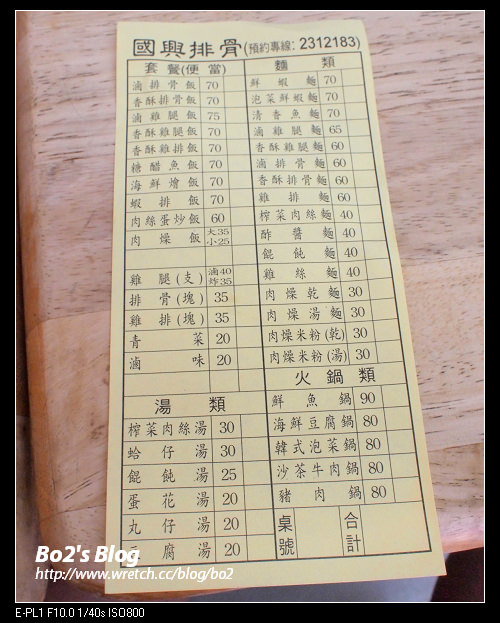 國興排骨(預約專線: 2312183)
套餐(便當)
滷排骨飯 70
香酥排骨飯 70
滷雞腿飯 75
香酥雞腿飯 70
香酥雞排飯 70
糖醋魚飯 70
海鮮燴飯 70
蝦排飯 70
肉絲蛋炒飯 60
肉燥飯 大35 小25
雞腿(支) 滷40 炸35
排骨(塊) 35
雞排(塊) 35
青菜 20
滷味 20
湯類
榨菜肉絲湯 30
蛤仔湯 30
餛飩湯 25
蛋花湯 20
丸仔湯 20
腐湯 20
麵類
鮮蝦麵 70
泡菜鮮蝦麵 70
清香魚麵 70
滷雞腿麵 65
香酥雞腿麵 60
滷排骨麵 60
香酥排骨麵 60
雞排麵 60
榨菜肉絲麵 40
酢醬麵 40
餛飩麵 40
雞絲麵 40
肉燥乾麵 30
肉燥湯麵 30
肉燥米粉(乾) 30
肉燥米粉(湯) 30
火鍋類
鮮魚鍋 90
海鮮豆腐鍋 80
韓式泡菜鍋 80
沙茶牛肉鍋 80
豬肉鍋 80
桌號
合計
Bo2's Blog
http://www.wretch.cc/blog/bo2
E-PL1 F10.0 1/40s ISO800